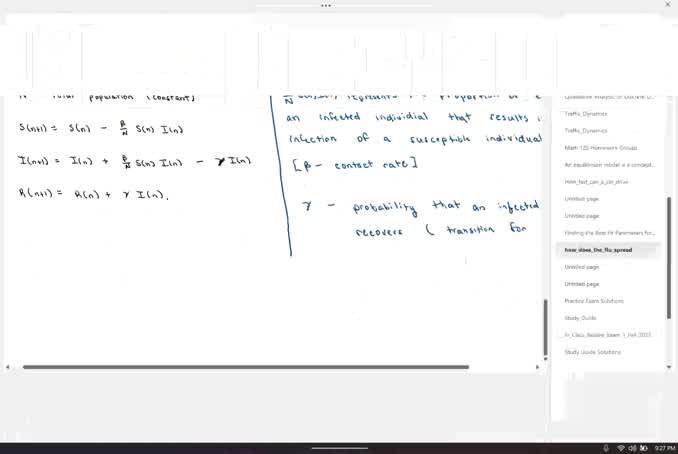 Total population (constant)
S(n+1) = S(n) - β/N S(n) I(n)
I(n+1) = I(n) + β/N S(n) I(n) - γ I(n)
R(n+1) = R(n) + γ I(n).
represents proportion
an infected individial that results
infection of a susceptible individual
[β - contact rate]
γ - probability that an infected
recovers ( transition for
Qualitative Analysis of Discrete D...
Traffic_Dynamics
Traffic_Dynamics
Math 125 Homework Groups
An equilibrium model is a concept...
How_fast_can_a_car_drive
Untitled page
Untitled page
Finding the Best Fit Parameters for...
how_does_the_flu_spread
Untitled page
Untitled page
Practice Exam Solutions
Study_Guide
In_Class_Review Exam 1_Fall 2023
Study Guide Solutions
9:27 PM